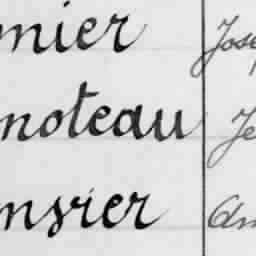 mier Jose
noteau Je
nsrier Am